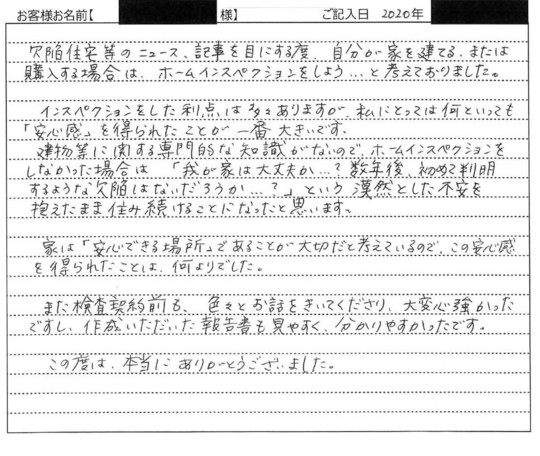 お客様お名前【 様】 ご記入日 2020年
欠陥住宅等のニュース、記事を目にする度、自分が家を建てる、または
購入する場合は、ホームインスペクションをしよう…と考えておりました。
インスペクションをした利点は多々ありますが、私にとっては何といっても
「安心感」を得られたことが一番大きいです。
建物等に関する専門的な知識がないので、ホームインスペクションを
しなかった場合は「我が家は大丈夫か…?数年後、初めて判明
するような欠陥はないだろうか…?」という漠然とした不安を
抱えたまま住み続けることになったと思います。
家は「安心できる場所」であることが大切だと考えているので、この安心感
を得られたことは、何よりでした。
また検査契約前も、色々とお話をきいてくださり、大変心強かった
ですし、作成いただいた報告書も見やすく、分かりやすかったです。
この度は、本当にありがとうございました。